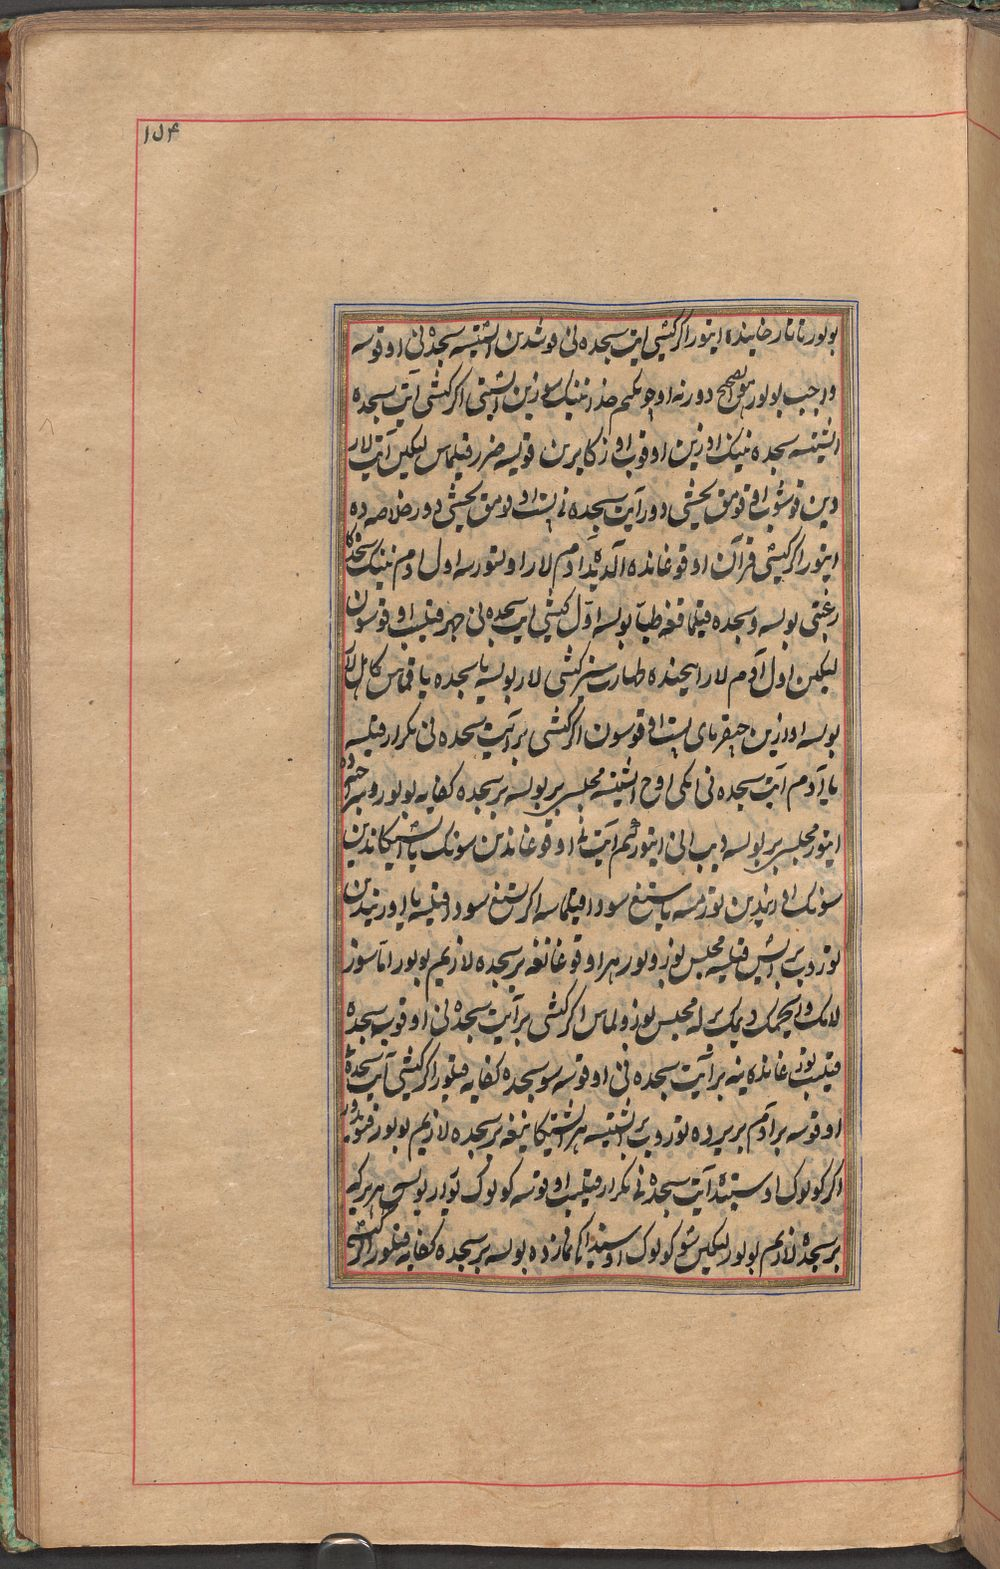 ۱۵۴
بولور تاتارخانیده ایتور اگر کیشی ایت سجده نی قوشدین ایشیتسه سجده نی اوقوسه
واجب بولور هو الصحیح دورنه اوچونکیم هذا نینک سوزین ایشیتتی اگر کیشی آیت سجده
ایشیتسه سجده نینک اوزین اوقوب اوزکا یرین قویسه ضرر قیلماس لیکن آیت لار
دین قوشوب اوقومق یخشی دور آیت سجده نی پست اوقومق یخشی دور خلاصه ده
ایتور اگر کیشی قرآن اوقوغانده آلدیدا آدم لار اولتورسه اول آدم نینک سجده کا
رغبتی بولسه و سجده قیلماقغه طیار بولسه اول کیشی ایت سجده نی جهر قیلیب اوقوسون
لیکن اول آدم لار ایچنده طهارت سیز کیشی لار بولسه یا سجده یاقماس کاهل لار
بولسه اوازین چیقرمای پست اوقوسون اگر کیشی بر آیت سجده نی تکرار قیلسه
یا آدم آیت سجده نی ایکی اوچ ایشیتسه مجلس بر بولسه بر سجده کفایه بولور و سراجیه ده
ایتور مجلس بر بولسه دیب انی ایتورکیم آیت نی اوقوغاندین سونک یا ایشیتکاندین
سونک اورنیدین تورمسه یا ستیغ سودا قیلماسه اگر ستیغ سودا قیلسه یا اورنیدین
توروب بر ایش قیلسه مجلس بوزولور هر اوقوغانغه بر سجده لازیم بولور اما سوز
لامک و ایچمک دیمک بر له مجلس بوزولماس اگر کیشی بر آیت سجده نی اوقوب سجده
قیلیب بولغانده ینه بر آیت سجده نی اوقوسه سو سجده کفایه قیلور اگر کیشی آیت سجده نی
اوقوسه بر آدم بر یرده توروب بر ایشیتسه هر ایشیتکانیغه بر سجده لازیم بولور فتوی دور
اگر کولوک اوستیده آیت سجده نی تکرار قیلیب اوقوسه کولوک یورار بولسه هر بریکه
بر سجده لازیم بولور لیکن شو کولوک اوستیدا کا نمازده بولسه بر سجده کفایه قیلور اگر کیشی